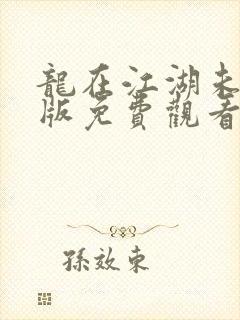 龍在江湖未
版免費觀看
孫效東